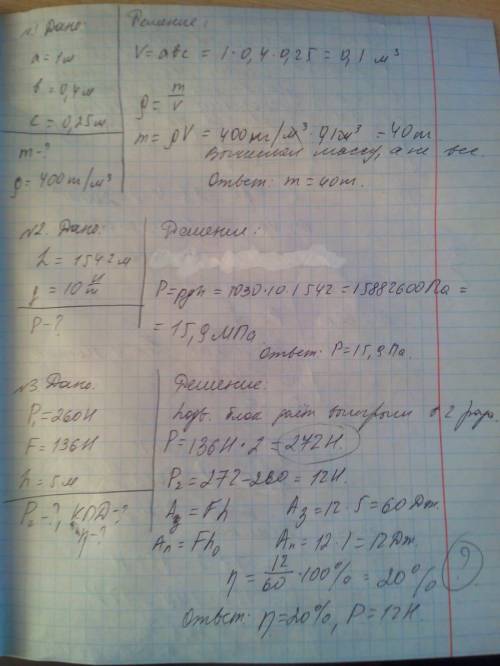 №1 Дано: Решение:
a = 1м V = abc = 1·0,4·0,25 = 0,1 м³
b = 0,4м
c = 0,25м ρ = m/V
m - ? m = ρV = 400кг/м³ · 0,1м³ = 40кг
Вычислил массу, а не вес.
ρ = 400кг/м³ Ответ: m = 40кг.
№2. Дано: Решение:
h = 1542 м
g = 10 Н/кг P = ρgh = 1030·10·1542 = 15882600 Па =
P - ? = 15,9 МПа
Ответ: P = 15,9 Па.
№3 Дано: Решение:
P₁ = 260Н Подв. блок даёт выигрыш в 2 раза.
F = 136Н P = 136Н · 2 = 272Н.
h = 5м P₂ = 272 - 260 = 12Н.
P₂ - ?, КПД = ? Aз = Fh Aз = 12 · 5 = 60Дж.
η - ? Aп = Fh₀ Aп = 12 · 1 = 12Дж.
η = 12/60 · 100% = 20% ?
Ответ: η = 20%, P = 12Н.